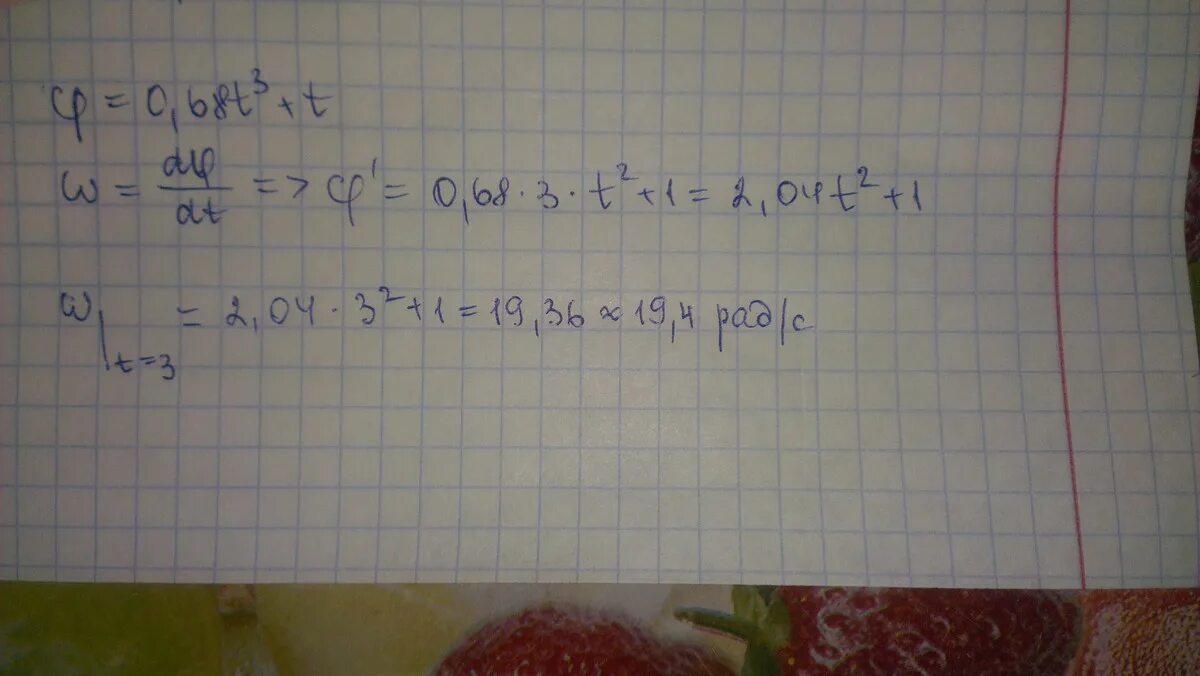 φ = 0,68t³ + t
ω = dφ/dt => φ' = 0,68 · 3 · t² + 1 = 2,04t² + 1
ω|t=3 = 2,04 · 3² + 1 = 19,36 ≈ 19,4 рад/с